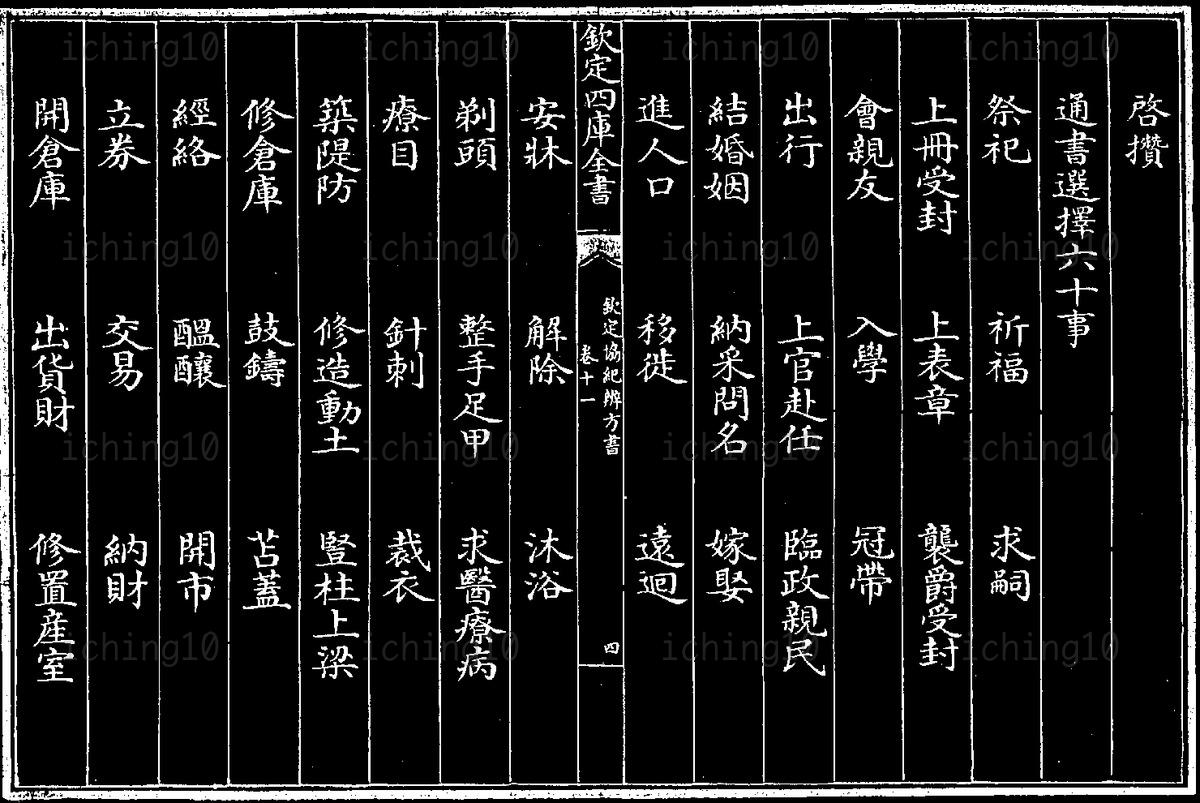 啓攢
通書選擇六十事
祭祀 祈福 求嗣
上冊受封 上表章 襲爵受封
會親友 入學 冠帶
出行 上官赴任 臨政親民
結婚姻 納采問名 嫁娶
進人口 移徙 遠迴
欽定四庫全書
欽定協紀辨方書
卷十一
四
安牀 解除 沐浴
剃頭 整手足甲 求醫療病
療目 針刺 裁衣
築隄防 修造動土 豎柱上梁
修倉庫 鼓鑄 苫蓋
經絡 醞釀 開市
立券 交易 納財
開倉庫 出貨財 修置産室
iching10 iching10 iching10 iching10
iching10 iching10 iching10 iching10
iching10 iching10 iching10 iching10
iching10 iching10 iching10 iching10